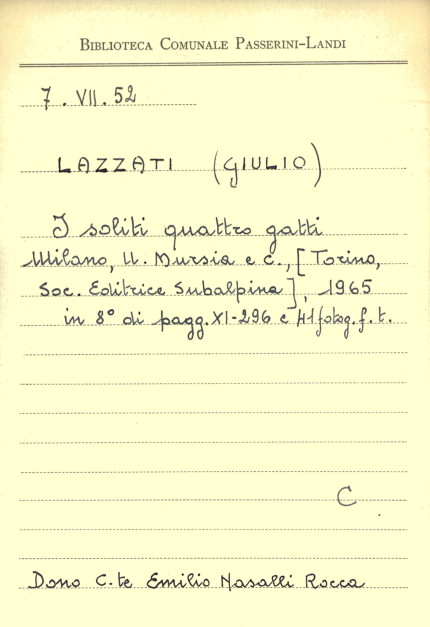 Biblioteca Comunale Passerini-Landi
7. VII. 52
LAZZATI (GIULIO)
I soliti quattro gatti
Milano, U. Mursia e c., [Torino,
Soc. Editrice Subalpina], 1965
in 8° di pagg. XI-296 e 41 fotog. f. t.
C
Dono C.te Emilio Nasalli Rocca